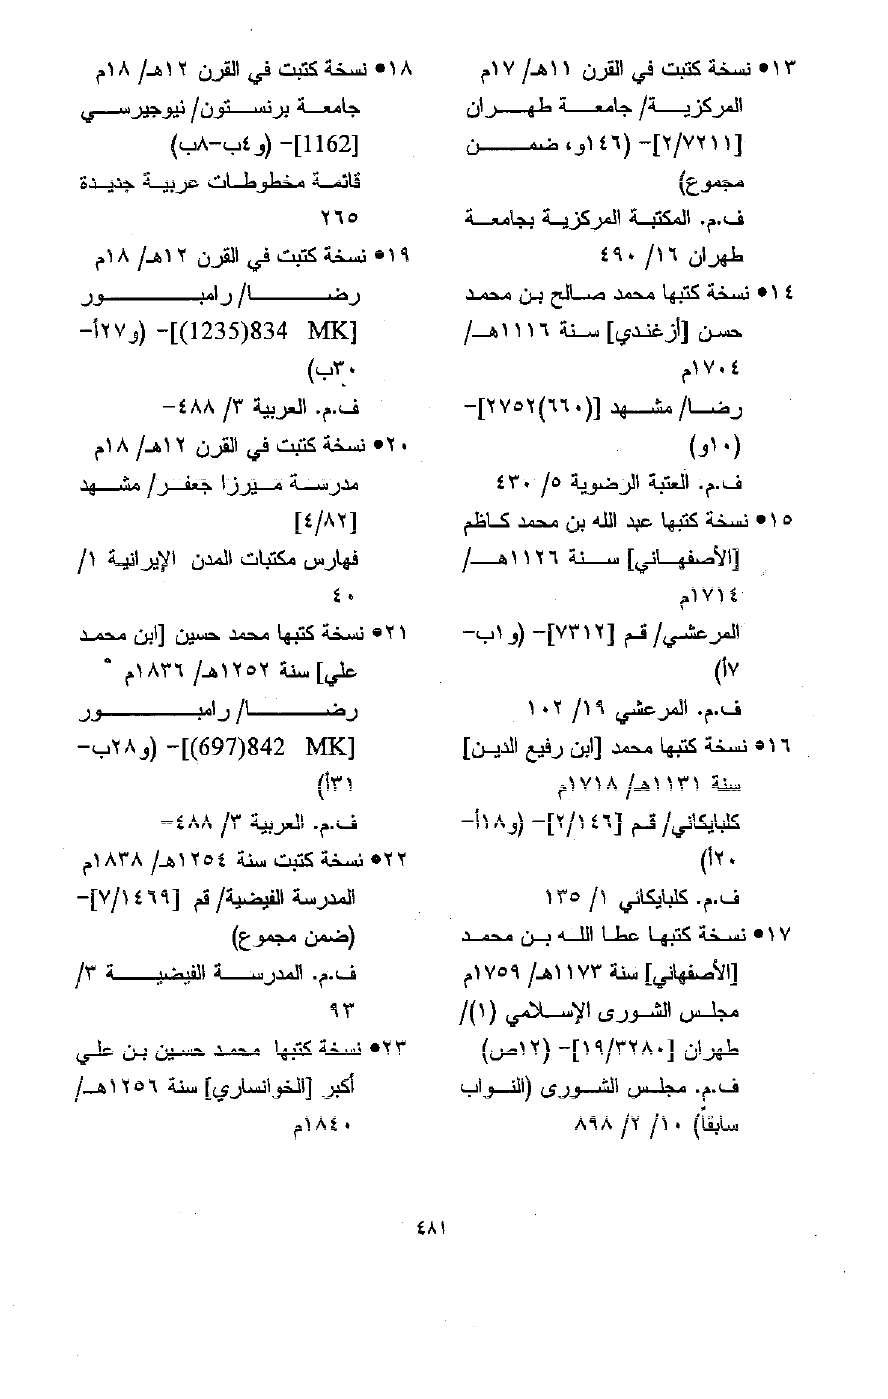 ١٣• نسخة كتبت في القرن ١١هـ/ ١٧م
المركزية/ جامعة طهران
[٢/٧٢١١]- (١٤٦و، ضمن
مجموع)
ف.م. المكتبة المركزية بجامعة
طهران ١٦/ ٤٩٠
١٤• نسخة كتبها محمد صالح بن محمد
حسن [أزغندي] سنة ١١١٦هـ/
١٧٠٤م
رضا/ مشهد [(٦٦٠)٢٧٥٢]-
(١٠و)
ف.م. العتبة الرضوية ٥/ ٤٣٠
١٥• نسخة كتبها عبد الله بن محمد كاظم
[الأصفهاني] سنة ١١٢٦هـ/
١٧١٤م
المرعشي/ قم [٧٣١٢]- (و١ب-
٧أ)
ف.م. المرعشي ١٩/ ١٠٢
١٦• نسخة كتبها محمد [ابن رفيع الدين]
سنة ١١٣١هـ/ ١٧١٨م
كلبايكاني/ قم [٢/١٤٦]- (و١٨أ-
٢٠أ)
ف.م. كلبايكاني ١/ ١٣٥
١٧• نسخة كتبها عطا الله بن محمد
[الأصفهاني] سنة ١١٧٣هـ/ ١٧٥٩م
مجلس الشورى الإسلامي (١)/
طهران [١٩/٣٢٨٠]- (١٢ص)
ف.م. مجلس الشورى (النواب
سابقاً) ١٠/ ٢/ ٨٩٨
١٨• نسخة كتبت في القرن ١٢هـ/ ١٨م
جامعة برنستون/ نيوجيرسي
[1162]- (و٤ب-٨ب)
قائمة مخطوطات عربية جديدة
٢٦٥
١٩• نسخة كتبت في القرن ١٢هـ/ ١٨م
رضا/ رامبور
[MK 834(1235)]- (و٢٧أ-
٣٠ب)
ف.م. العربية ٣/ ٤٨٨-
٢٠• نسخة كتبت في القرن ١٢هـ/ ١٨م
مدرسة ميرزا جعفر/ مشهد
[٤/٨٢]
فهارس مكتبات المدن الإيرانية ١/
٤٠
٢١• نسخة كتبها محمد حسين [ابن محمد
علي] سنة ١٢٥٢هـ/ ١٨٣٦م
رضا/ رامبور
[MK 842(697)]- (و٢٨ب-
٣١أ)
ف.م. العربية ٣/ ٤٨٨-
٢٢• نسخة كتبت سنة ١٢٥٤هـ/ ١٨٣٨م
المدرسة الفيضية/ قم [٧/١٤٦٩]-
(ضمن مجموع)
ف.م. المدرسة الفيضية ٣/
٩٣
٢٣• نسخة كتبها محمد حسين بن علي
أكبر [الخوانساري] سنة ١٢٥٦هـ/
١٨٤٠م
٤٨١